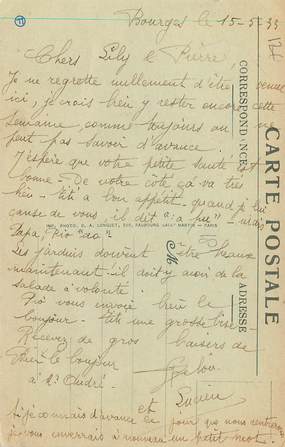 Bourges le 15-5-33
Chers Lily & Pierre,
Je ne regrette nullement d'être venue
ici, je crois bien y rester encore cette
semaine, comme toujours on ne
peut pas savoir d'avance.
J'espère que votre petite santé est
bonne - De notre côté ça va très
bien - Titi a bon appétit - quand je lui
cause de vous, il dit "a pu" - mais
Papa,
Les jardins doivent être beaux
maintenant - il doit y avoir de la
salade à volonté.
vous envoie bien le
bonjour - Titi une grosse bise -
Recevez de gros baisers de
le bonjour
à Mr André
Lucien
si je connais d'avance le jour que nous rentrerons
je vous enverrais à nouveau un petit mot.
CARTE POSTALE
CORRESPONDANCE
ADRESSE
M
IMP. PHOTO. D. A. LONGUET, 250, FAUBOURG SAINT MARTIN — PARIS